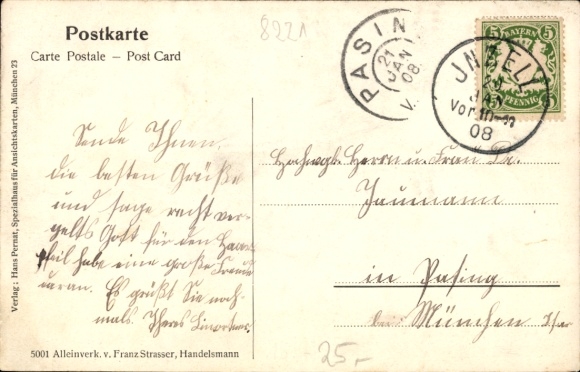 Postkarte
Carte Postale — Post Card
8221
PASING
21
JAN
08
V.
BAYERN
5
5
PFENNIG
JAN
Vor. 10-
08
Sende Ihnen
die besten Grüße
und sage recht ver-
gelts Gott für den Haar-
pfeil habe eine große Freude
daran. Es grüßt Sie noch-
mals
Hochwgb. Herrn u. Frau
in Pasing
bei München
Verlag: Hans Pernat, Spezialhaus für Ansichtskarten, München 23
5001 Alleinverk. v. Franz Strasser, Handelsmann
25.-